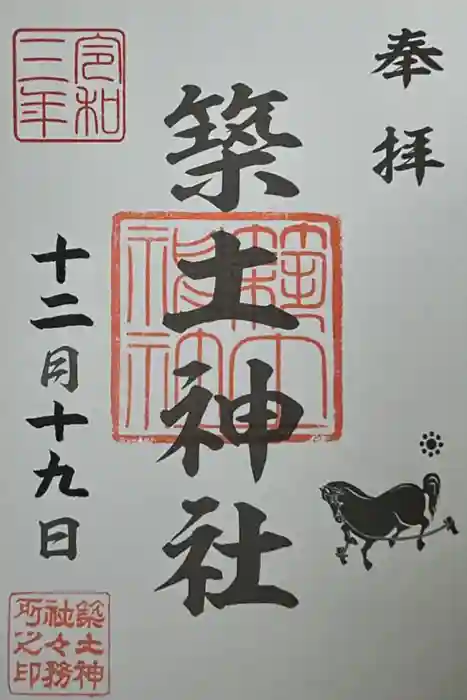 奉拝
築土神社
築土神社
令和三年
十二月十九日
築土神
社々務
所之印